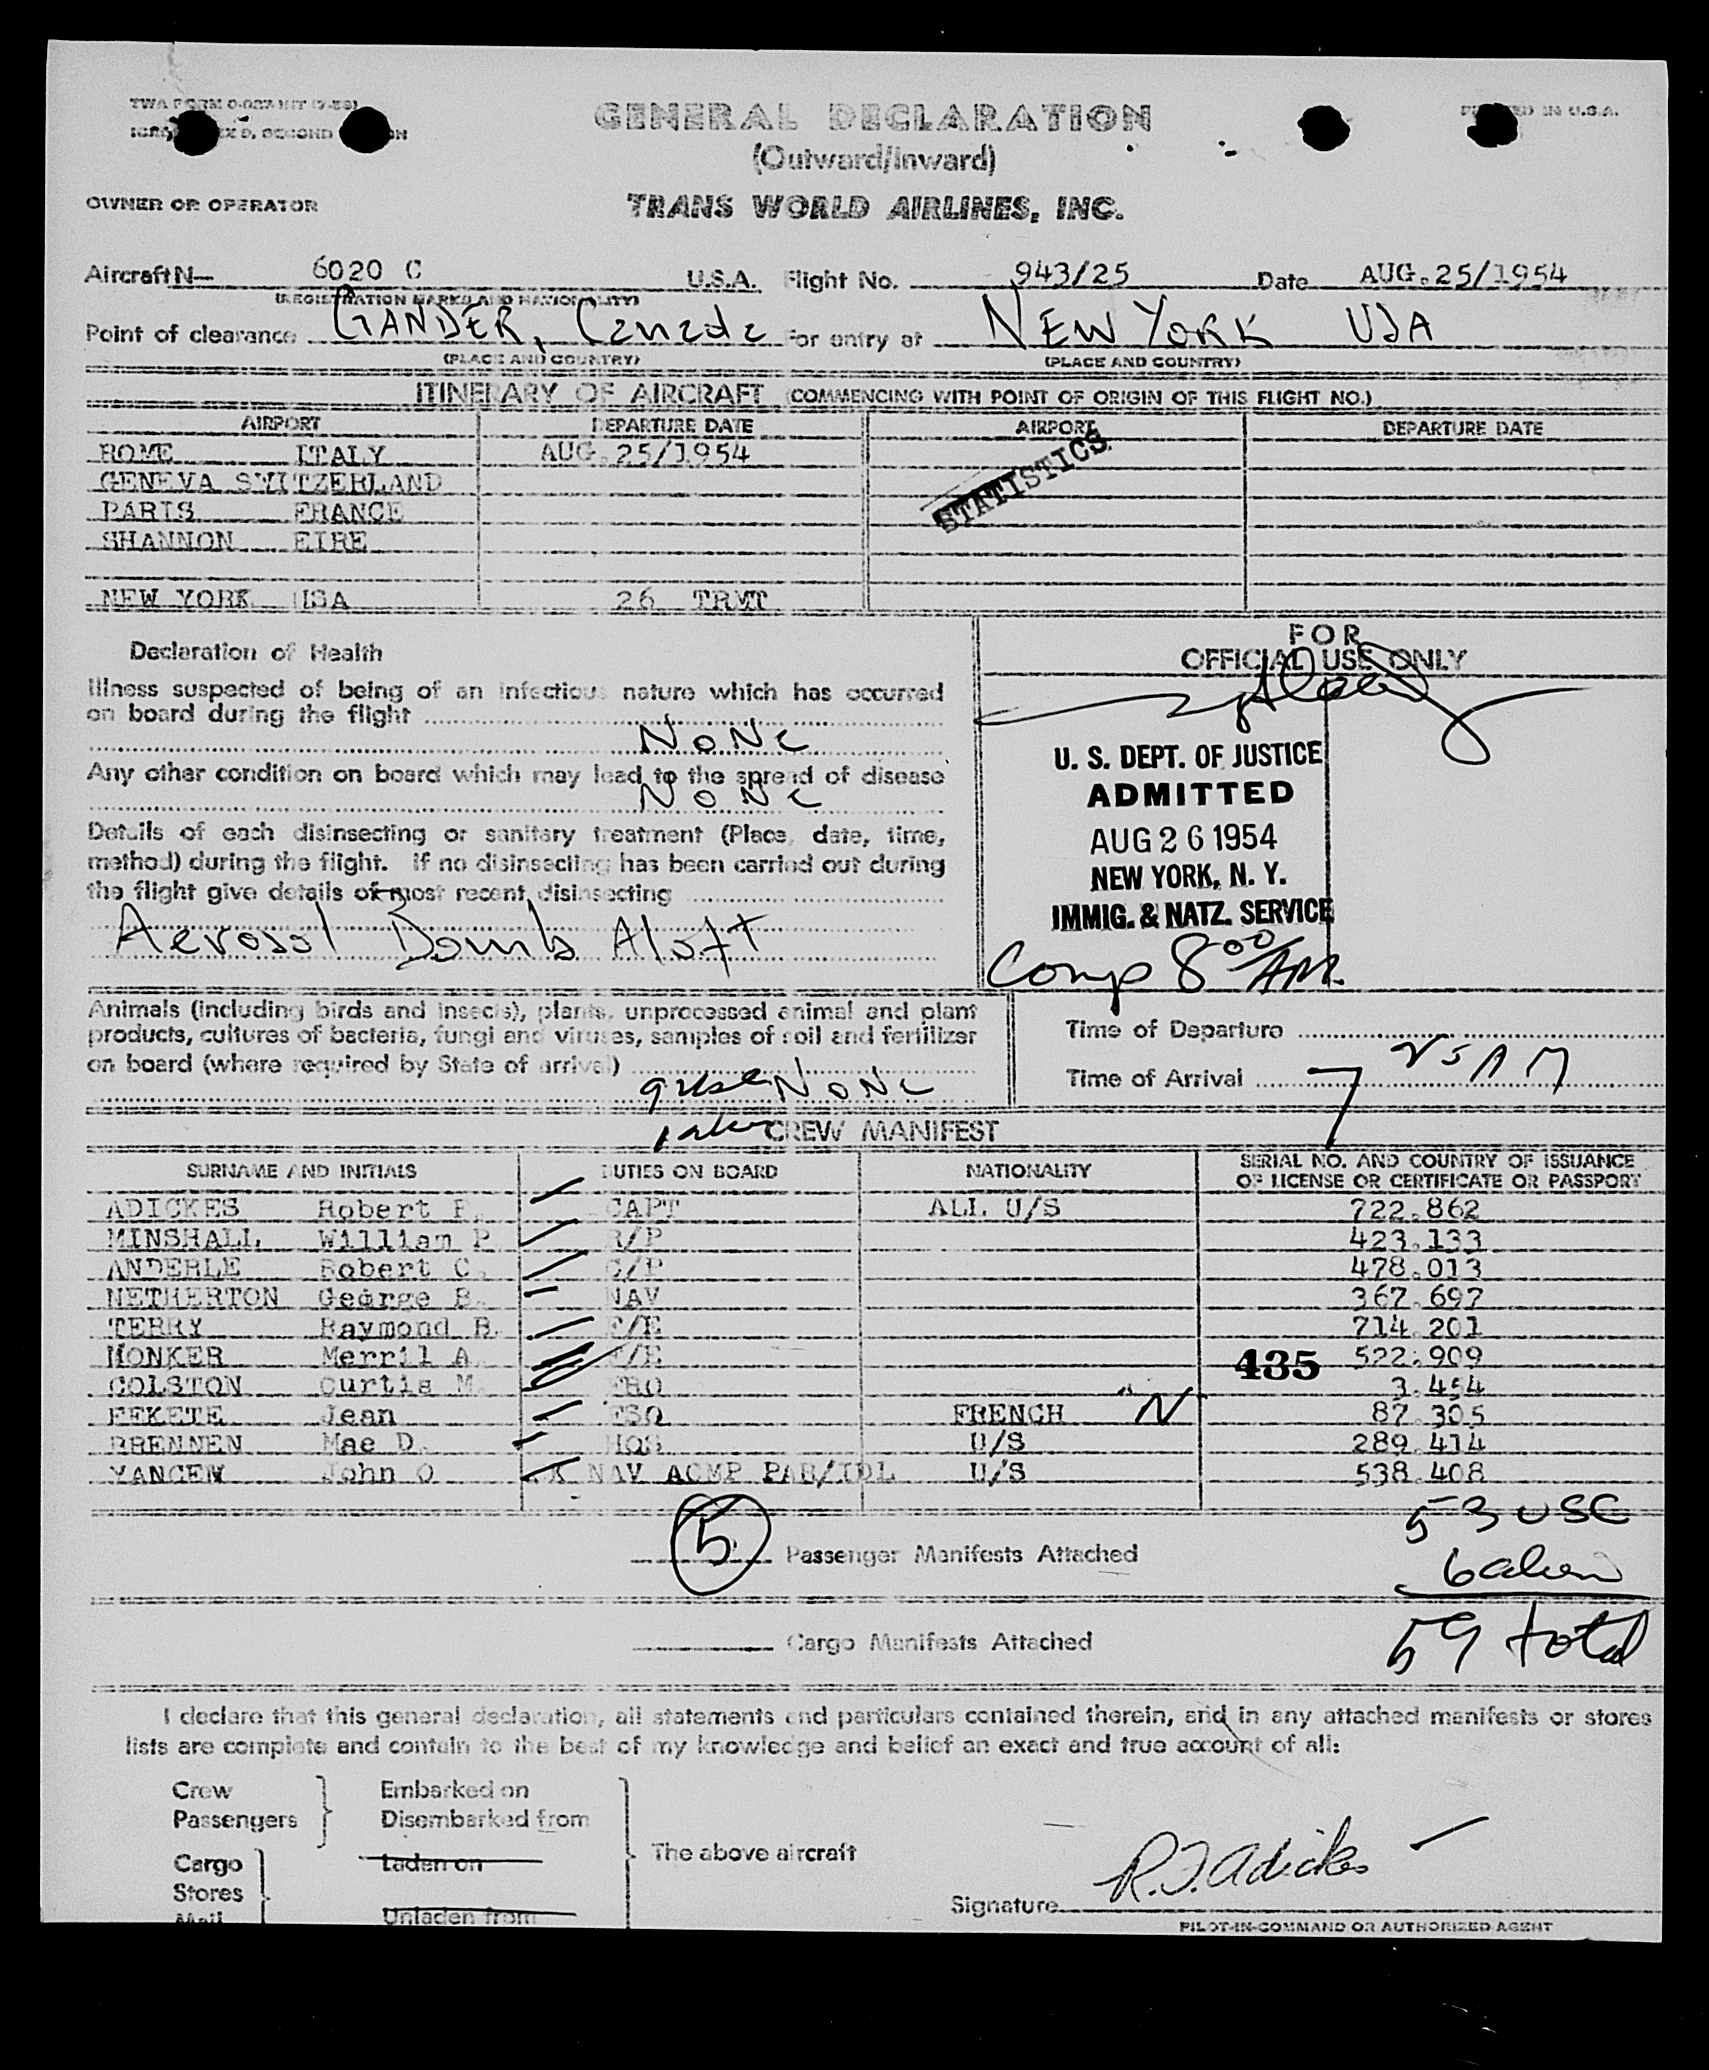 TWA FORM
PRINTED IN U.S.A.
GENERAL DECLARATION
(Outward/Inward)
OWNER OR OPERATOR
TRANS WORLD AIRLINES, INC.
Aircraft N— 6020 C U.S.A. Flight No. 943/25 Date AUG.25/1954
(REGISTRATION MARKS AND NATIONALITY)
Point of clearance GANDER, Canada For entry at NEW YORK USA
(PLACE AND COUNTRY) (PLACE AND COUNTRY)
ITINERARY OF AIRCRAFT (COMMENCING WITH POINT OF ORIGIN OF THIS FLIGHT NO.)
AIRPORT DEPARTURE DATE AIRPORT DEPARTURE DATE
ROME ITALY AUG.25/1954
STATISTICS
GENEVA SWITZERLAND
PARIS FRANCE
SHANNON EIRE
NEW YORK USA 26 TRMT
Declaration of Health
Illness suspected of being of an infectious nature which has occurred
on board during the flight
NONE
Any other condition on board which may lead to the spread of disease
NONE
Details of each disinsecting or sanitary treatment (Place, date, time,
method) during the flight. If no disinsecting has been carried out during
the flight give details of most recent disinsecting
Aerosol Bomb Aloft
FOR
OFFICIAL USE ONLY
U. S. DEPT. OF JUSTICE
ADMITTED
AUG 26 1954
NEW YORK, N. Y.
IMMIG. & NATZ. SERVICE
Comp 8 00/AM.
Animals (including birds and insects), plants, unprocessed animal and plant
products, cultures of bacteria, fungi and viruses, samples of soil and fertilizer
on board (where required by State of arrival)
9 usc NONE
1 alien
Time of Departure
Time of Arrival 7 25 AM
CREW MANIFEST
SURNAME AND INITIALS DUTIES ON BOARD NATIONALITY SERIAL NO. AND COUNTRY OF ISSUANCE
OF LICENSE OR CERTIFICATE OR PASSPORT
ADICKES Robert F. CAPT ALL U/S 722.862
MINSHALL William P R/P 423.133
ANDERLE Robert C. C/P 478.013
NETHERTON George B. NAV 367.697
TERRY Raymond B. F/E 714.201
HONKER Merril A. F/E 522.909
435
COLSTON Curtis M. FRO 3.454
FEKETE Jean FSO FRENCH N 87.305
BRENNEN Mae D. HOS U/S 289.414
YANCEW John O X NAV ACMP PAR/IDL U/S 538.408
53 USC
5 Passenger Manifests Attached
6 alien
Cargo Manifests Attached
59 total
I declare that this general declaration, all statements and particulars contained therein, and in any attached manifests or stores
lists are complete and contain to the best of my knowledge and belief an exact and true account of all:
Crew Embarked on
Passengers Disembarked from
The above aircraft
Cargo Laden on
Stores
Mail Unladen from
Signature R.F. Adickes
PILOT-IN-COMMAND OR AUTHORIZED AGENT